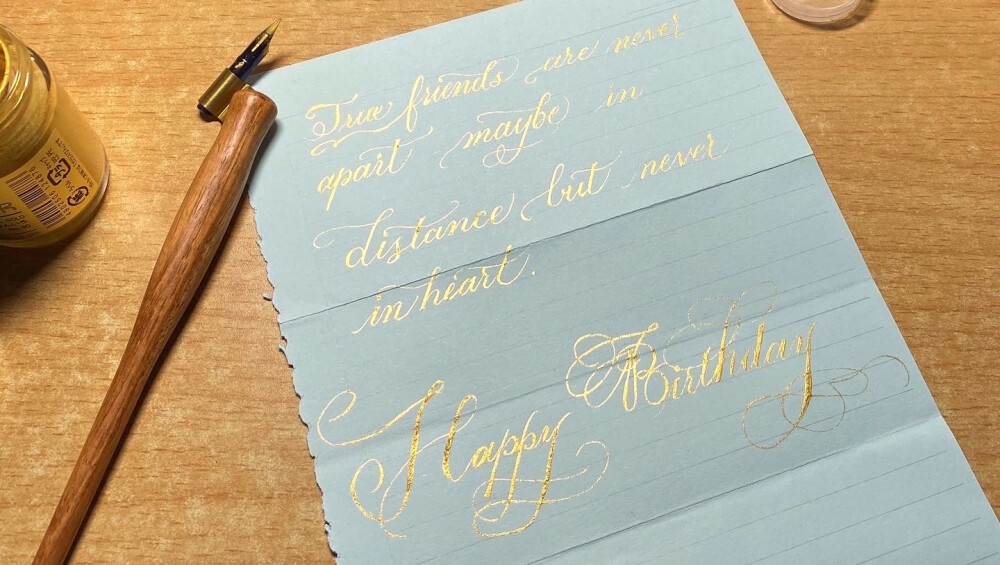 True friends are never
apart maybe in
distance but never
in heart.
Happy Birthday